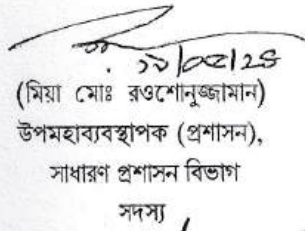 (মিয়া মোঃ রওশোনুজ্জামান)
উপমহাব্যবস্থাপক (প্রশাসন),
সাধারণ প্রশাসন বিভাগ
সদস্য